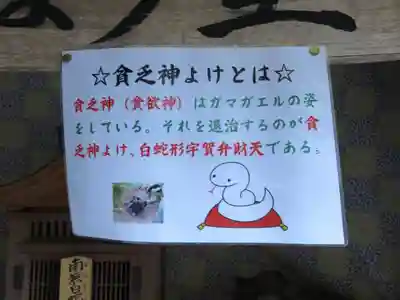 ☆貧乏神よけとは☆
貧乏神（貪欲神）はガマガエルの姿
をしている。それを退治するのが貧
乏神よけ、白蛇形宇賀弁財天である。